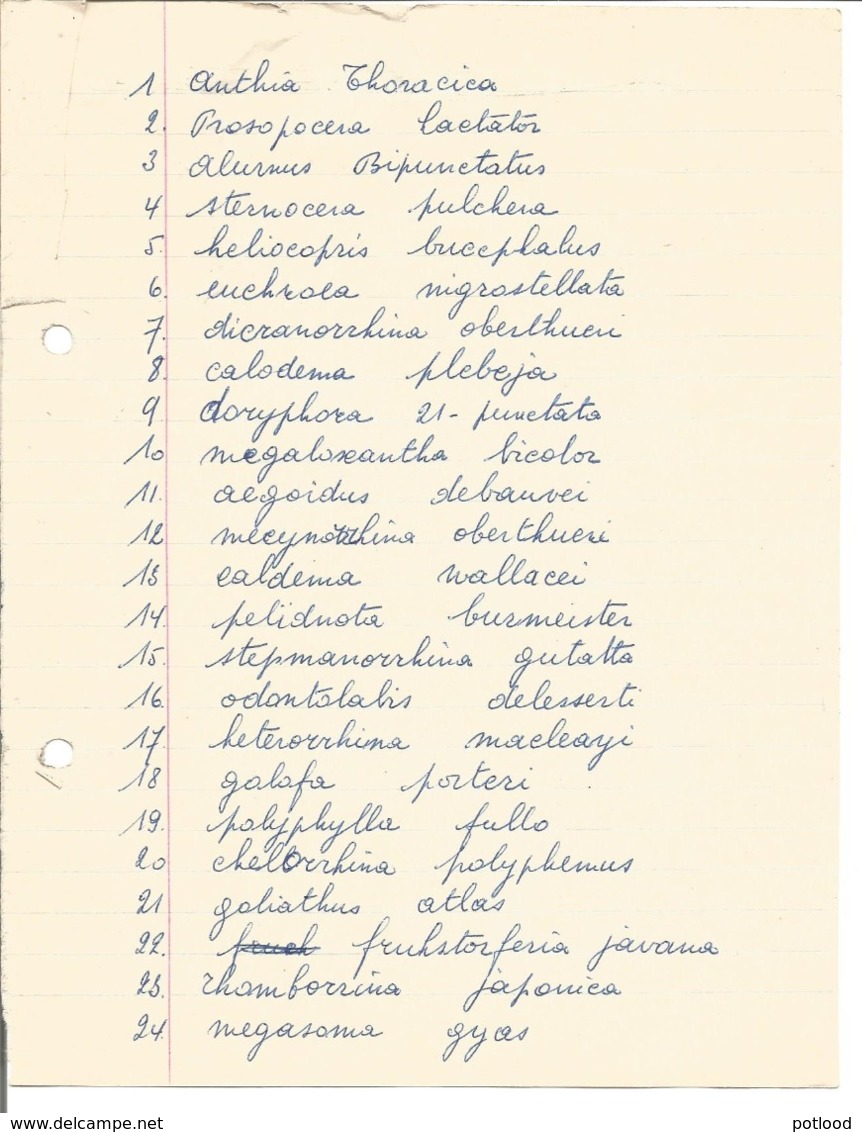 1 Anthia Thoracica
2. Prosopocera lactator
3 Alurnus Bipunctatus
4 sternocera pulchera
5. heliocopris bucephalus
6. euchroea nigrostellata
7. dicranorrhina oberthueri
8. calodema plebeja
9 doryphora 21-punctata
10 megaloxantha bicolor
11. aegoidus debauvei
12 mecynorrhina oberthueri
13 caldema wallacei
14. pelidnota burmeister
15. stepmanorrhina gutatta
16. odontolabis delesserti
17. heterorrhima macleayi
18 golofa porteri
19. polyphylla fullo
20 chelorrhina polyphemus
21 goliathus atlas
22. fruch fruhstorferia javana
23. rhomborrina japonica
24. megasoma gyas
www.delcampe.net
potlood